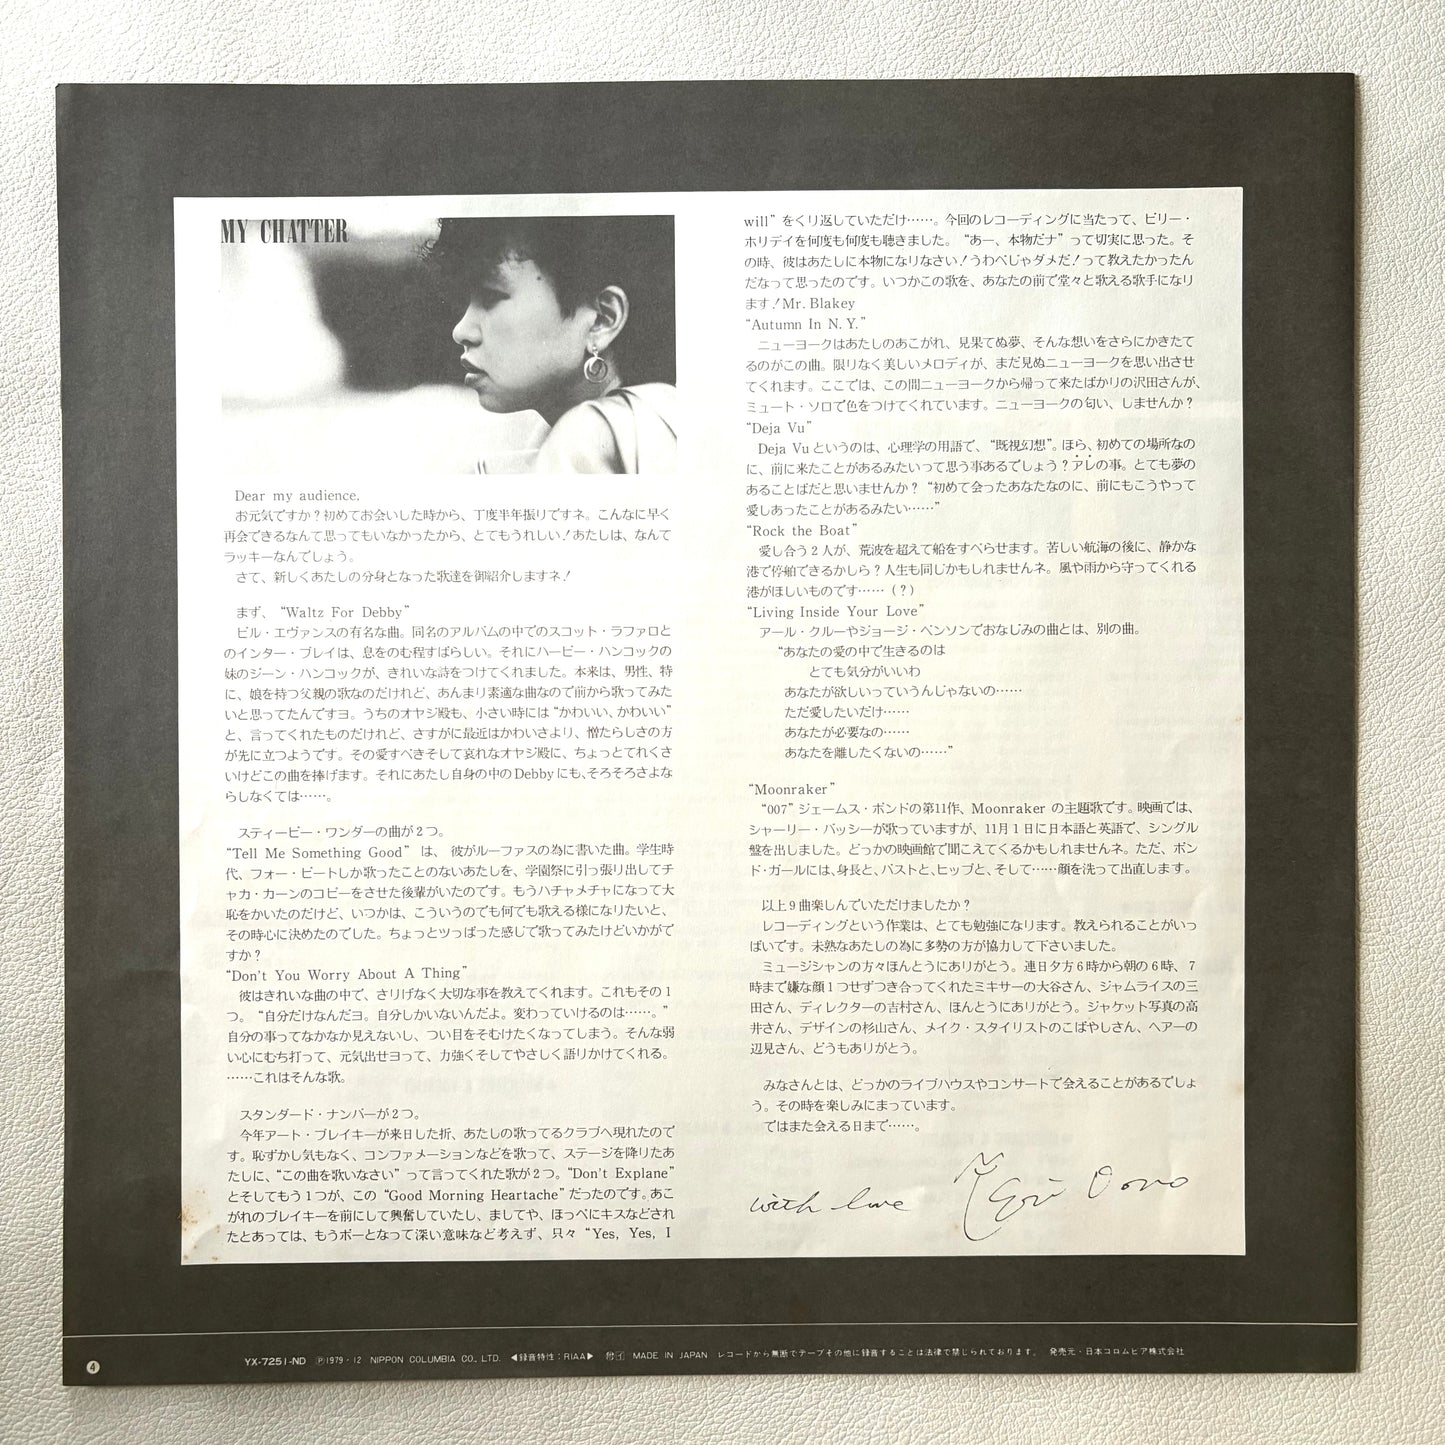 MY CHATTER
Dear my audience,
お元気ですか？初めてお会いした時から、丁度半年振りですネ。こんなに早く
再会できるなんて思ってもいなかったから、とてもうれしい！あたしは、なんて
ラッキーなんでしょう。
さて、新しくあたしの分身となった歌達を御紹介しますネ！
まず、“Waltz For Debby”
ビル・エヴァンスの有名な曲。同名のアルバムの中でのスコット・ラファロと
のインター・プレイは、息をのむ程すばらしい。それにハービー・ハンコックの
妹のジーン・ハンコックが、きれいな詩をつけてくれました。本来は、男性、特
に、娘を持つ父親の歌なのだけれど、あんまり素適な曲なので前から歌ってみた
いと思ってたんですヨ。うちのオヤジ殿も、小さい時には“かわいい、かわいい”
と、言ってくれたものだけれど、さすがに最近はかわいさより、憎たらしさの方
が先に立つようです。その愛すべきそして哀れなオヤジ殿に、ちょっとてれくさ
いけどこの曲を捧げます。それにあたし自身の中のDebbyにも、そろそろさよな
らしなくては……。
スティービー・ワンダーの曲が2つ。
“Tell Me Something Good” は、 彼がルーファスの為に書いた曲。学生時
代、フォー・ビートしか歌ったことのないあたしを、学園祭に引っ張り出してチ
ャカ・カーンのコピーをさせた後輩がいたのです。もうハチャメチャになって大
恥をかいたのだけど、いつかは、こういうのでも何でも歌える様になりたいと、
その時心に決めたのでした。ちょっとツっぱった感じで歌ってみたけどいかがで
すか？
“Don't You Worry About A Thing”
彼はきれいな曲の中で、さりげなく大切な事を教えてくれます。これもその1
つ。“自分だけなんだヨ。自分しかいないんだよ。変わっていけるのは……。”
自分の事ってなかなか見えないし、つい目をそむけたくなってしまう。そんな弱
い心にむち打って、元気出せヨって、力強くそしてやさしく語りかけてくれる。
……これはそんな歌。
スタンダード・ナンバーが2つ。
今年アート・ブレイキーが来日した折、あたしの歌ってるクラブへ現れたので
す。恥ずかし気もなく、コンファメーションなどを歌って、ステージを降りたあ
たしに、“この曲を歌いなさい”って言ってくれた歌が2つ。“Don't Explane”
とそしてもう1つが、この “Good Morning Heartache”だったのです。あこ
がれのブレイキーを前にして興奮していたし、ましてや、ほっぺにキスなどされ
たとあっては、もうボーとなって深い意味など考えず、只々 “Yes, Yes, I
will” をくり返していただけ……。今回のレコーディングに当たって、ビリー・
ホリデイを何度も何度も聴きました。“あー、本物だナ”って切実に思った。そ
の時、彼はあたしに本物になりなさい！うわべじゃダメだ！って教えたかったん
だなって思ったのです。いつかこの歌を、あなたの前で堂々と歌える歌手になり
ます！Mr. Blakey
“Autumn In N. Y.”
ニューヨークはあたしのあこがれ、見果てぬ夢、そんな想いをさらにかきたて
るのがこの曲。限りなく美しいメロディが、まだ見ぬニューヨークを思い出させ
てくれます。ここでは、この間ニューヨークから帰って来たばかりの沢田さんが、
ミュート・ソロで色をつけてくれています。ニューヨークの匂い、しませんか？
“Deja Vu”
Deja Vu というのは、心理学の用語で、“既視幻想”。ほら、初めての場所なの
に、前に来たことがあるみたいって思う事あるでしょう？アレの事。とても夢の
あることばだと思いませんか？“初めて会ったあなたなのに、前にもこうやって
愛しあったことがあるみたい……”
“Rock the Boat”
愛し合う2人が、荒波を超えて船をすべらせます。苦しい航海の後に、静かな
港で停舶できるかしら？人生も同じかもしれませんネ。風や雨から守ってくれる
港がほしいものです……（？）
“Living Inside Your Love”
アール・クルーやジョージ・ベンソンでおなじみの曲とは、別の曲。
“あなたの愛の中で生きるのは
とても気分がいいわ
あなたが欲しいっていうんじゃないの……
ただ愛したいだけ……
あなたが必要なの……
あなたを離したくないの……”
“Moonraker”
“007” ジェームス・ボンドの第11作、Moonraker の主題歌です。映画では、
シャーリー・バッシーが歌っていますが、11月1日に日本語と英語で、シングル
盤を出しました。どっかの映画館で聞こえてくるかもしれませんネ。ただ、ボン
ド・ガールには、身長と、バストと、ヒップと、そして……顔を洗って出直します。
以上9曲楽しんでいただけましたか？
レコーディングという作業は、とても勉強になります。教えられることがいっ
ぱいです。未熟なあたしの為に多勢の方が協力して下さいました。
ミュージシャンの方々ほんとうにありがとう。連日夕方6時から朝の6時、7
時まで嫌な顔1つせずつき合ってくれたミキサーの大谷さん、ジャムライスの三
田さん、ディレクターの吉村さん、ほんとうにありがとう。ジャケット写真の高
井さん、デザインの杉山さん、メイク・スタイリストのこばやしさん、ヘアーの
辺見さん、どうもありがとう。
みなさんとは、どっかのライブハウスやコンサートで会えることがあるでしょ
う。その時を楽しみにまっています。
ではまた会える日まで……。
with love
4 YX-7251-ND Ⓟ1979・12 NIPPON COLUMBIA CO., LTD. ◀録音特性：RIAA▶ MADE IN JAPAN レコードから無断でテープその他に録音することは法律で禁じられております。 発売元・日本コロムビア株式会社